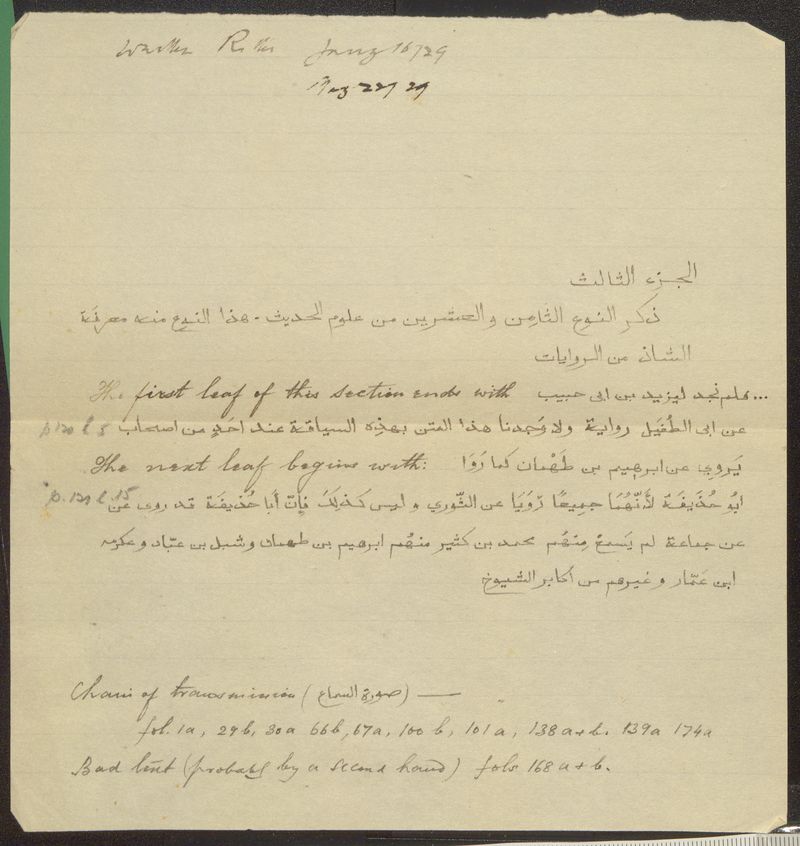 الجزء الثالث
ذكر النوع الثامن والعشرين من علوم الحديث - هذا النوع منه معرفة
الشاذ من الروايات
The first leaf of this section ends with ... فلم نجد ليزيد بن ابى حبيب
عن ابى الطُفَيل رواية ولا وَجدنا هذا المتن بهذه السياقة عند احدٍ من اصحاب p 120 l 5
The next leaf begins with: يَروِي عن ابرهيم بن طَهْمان كما رَوَا
ابُو حُذَيفَة لأَنّهُمَا جميعًا رَوَيَا عن الثَّوري وليس كذلِكَ فإنّ أبا حُذَيفَة قد روى عن p. 129 l. 15
عن جماعة لم يَسمعْ منهُم محمد بن كثير منهُم ابرهيم بن طهمان وشبل بن عبّاد وعكرمه
ابن عَمّار وغيرهم من أكابر الشيوخ
Chain of transmission (صورة السماع) —
fol. 1a, 29b, 30a 66b, 67a, 100b, 101a, 138 a+b. 139a 174a
Bad lint (probably by a second hand) fols 168 a+b.